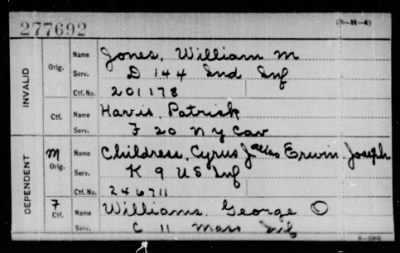 277692
(3-H-4)
INVALID
Orig. Name Jones, William M
Serv. D 144 Ind Inf
Ctf. No. 201178
Ctf. Name Havis, Patrick
Serv. F 20 N Y Cav
DEPENDENT
M Orig. Name Childress, Cyrus J alias Erwin, Joseph
Serv. K 9 US Inf
Ctf. No. 246711
F Ctf. Name Williams, George O
Serv. C 11 Mass Inf